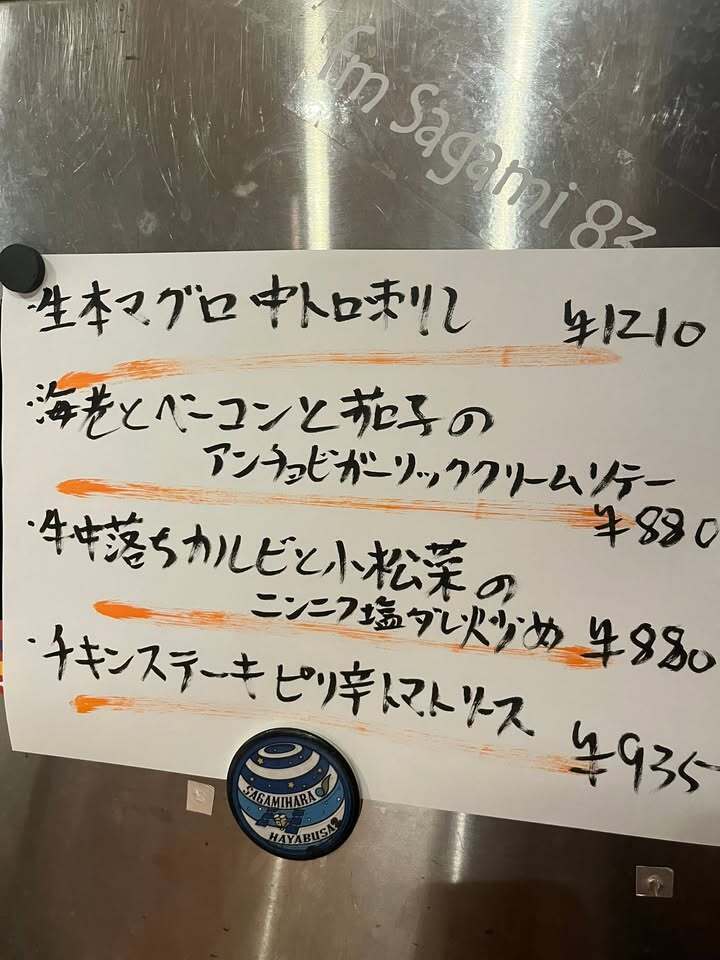 fm Sagami 83
・生本マグロ 中トロ刺し ¥1210
・海老とベーコンと茄子の
アンチョビガーリッククリームソテー
¥880
・牛中落ちカルビと小松菜の
ニンニク塩ダレ炒め ¥880
・チキンステーキ ピリ辛トマトソース
¥935
SAGAMIHARA
HAYABUSA2